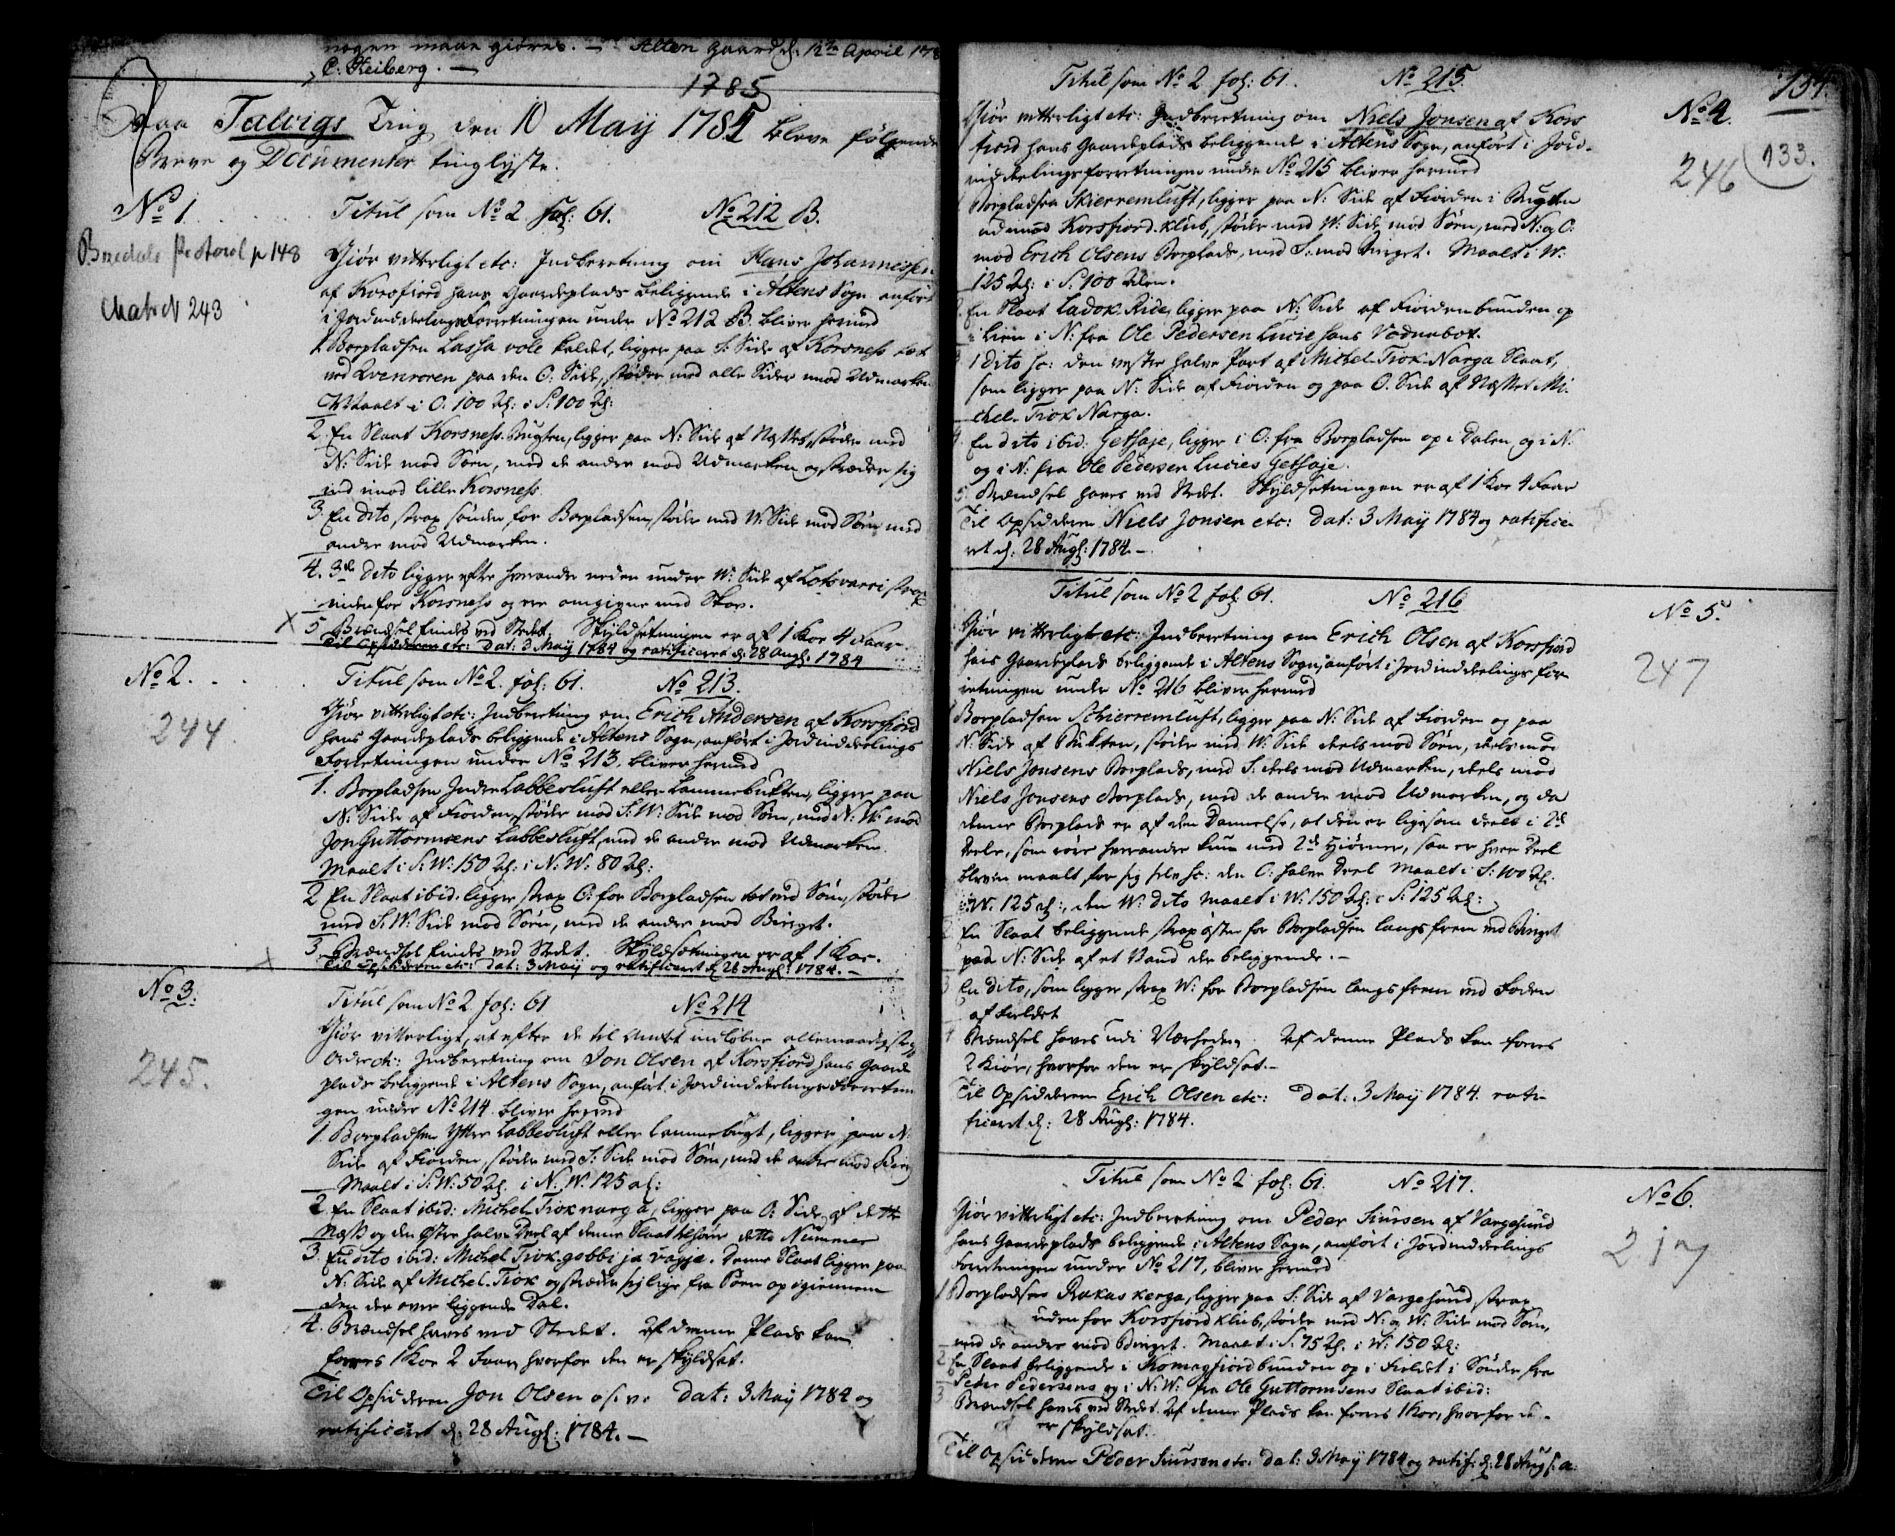 nogen maae giøres. — Alten gaard d: 12te April 178
C. Heiberg. —
1785
Paa Talvigs Ting den 10 May 1785 bleve følgende
Breve og Documenter tinglyste.
No 1.
Titul som No 2 fol: 61. No 212 B.
protocol p 148
Matr N 243
Giør vitterligt etc: Indberetning om Hans Johannessen
af Korsfiord hans Gaardeplads beliggende i Altens Sogn anført
i Jordinddeelings Forretningen under No 212 B. bliver herved
1. Boepladsen Lassa vole kaldet, ligger paa S: Side af Korsness tæt
ved Qvenroren paa den O: Side, støder med alle Sider mod Udmarken
Maalt i O: 100 Al: i S: 100 Al:
2. En Slaat Korsness Bugten, ligger paa N: Side af Næsset, støder med
N: Side mod Søen, med de andre mod Udmarken og strækker sig
ind imod lille Korsness.
3. En dito strax sønden for Boepladsen, støder med W: Side mod Søen med
andre mod Udmarken.
4. 3de dito ligger efter hverandre neden under W: Side af Lotsvarri strax
inden for Korsness og ere omgivne med Skov.
5. Brændsel findes ved Stedet. Skyldsetningen er af 1 Koe 4 Faar.
Til Opsidderen etc: Dat: 3 May 1784 og ratificeret d: 28 Augs: 1784
No 2.
244
Titul som No 2. fol: 61. No 213.
Giør vitterligt etc: Indberetning om Erich Andersen af Korsfiord
hans Gaardeplads beliggende i Altens Sogn, anført i Jordinddeelings
Forretningen under No 213. bliver herved
1. Boepladsen Indre Labbesluft eller Lammebukten, ligger paa
N: Side af Fiorden, støder med S: W: Side mod Søen, med N: W: mod
Jon Guttormsens Labbesluft, med de andre mod Udmarken.
Maalt i S: W: 150 Al: i N: W: 80 Al:
2 En Slaat ibid: ligger strax O: for Boepladsen tæt ved Søen, støder
med S: W: Side mod Søen, med de andre mod Bierget.
3. Brændsel findes ved Stedet. Skyldsætningen er af 1 Koe.
Til Opsidderen etc: Dat: 3 May og ratificeret d: 28 Augs: 1784. —
No 3.
245.
Titul som No 2. fol: 61 No 214
Giør vitterligt, at efter de til Amtet indløbne allernaadigste
Ordre etc: Indberetning om Jon Olsen af Korsfiord hans Gaarde
plads beliggende i Altens Sogn, anført i Jordinddeelings Forretnin
gen under No 214. bliver herved
1. Boepladsen Yttre Labbesluft eller Lammebugt, ligger paa N:
Side af Fiorden, støder med S: Side mod Søen, med de andre mod Bierg
Maalt i S: W: 50 Al. i N: W. 125 al:
2. En Slaat ibid: Michel Tiok narga, ligger paa O: Side af dette
Næss og den Østre halve Deel af denne Slaat tilhører dette Nummer
3. En dito ibid: Michel Tiok gobbe ja vagje. Denne Slaat ligger paa
N: Side af Michel Tiok og strækker sig lige fra Søen op igiennem
den der over liggende Dal.
4. Brændsel haves ved Stedet. Af denne Plads kan
forres 1 Koe 2 Faar, hvorfor den er skyldsat.
Til Opsidderen Jon Olsen o: s: v: Dat: 3 May 1784 og
ratificeret d: 28 Augs: 1784. —
134.
133.
Titul som No 2. fol: 61. No 215.
No 4.
246
Giør vitterligt etc: Indberetning om Niels Jonsen af Kors
fiord hans Gaardeplads beliggende i Altens Sogn, anført i Jord-
inddeelings forretningen under No 215 bliver herved
1 Boepladsen Skierremluft, ligger paa N: Side af Fiorden i Bugten
ud mod Korsfiord-klub, støder med W: Side mod Søen, med N: og O:
mod Erich Olsens Boeplads, med S: mod Bierget. Maalt i W:
125 Al: i S: 100 Alen.
2. En Slaat Ladok Ride, ligger paa N: Side af Fiordenbunden op
i Lien i N: fra Ole Pedersen Lucie hans Vadnabot.
3 1 dito sc: den vestre halve Part af Michel Tiok Narga Slaat,
som ligger paa N: Side af Fiorden og paa O. Side af Næsset Mi
chel Tiok Narga.
4. En dito ibid: Getsaje, ligger i O: fra Boepladsen op i Dalen, og i N:
og i N: fra Ole Pedersen Lucies Getsaje.
5. Brændsel haves ved Stedet. Skyldsetningen er af 1 Koe 4 Faar
Til Opsidderen Niels Jonsen etc: Dat: 3 May 1784 og ratifice
ret d: 28 Augs: 1784. —
Titul som No 2 fol: 61. No 216
No 5.
247
Giør vitterligt etc: Indberetning om Erich Olsen af Korsfiord
hans Gaardeplads beliggende i Altens Sogn, anført i Jordinddeelings for
retningen under No 216 bliver herved
1 Boepladsen Schierremluft, ligger paa N: Side af Fiorden og paa
N: Side af Bukten, støder med W: Side deels mod Søen, deels mod
Niels Jonsens Boeplads, med S: deels mod Udmarken, deels mod
Niels Jonsens Boeplads, med de andre mod Udmarken, og da
denne Boeplads er af den Dannelse, at den er ligesom deelt i 2de
deele, som røre hverandre kun med 2de Hiørner, saa er hver Deel
bleven maalt for sig selv sc: den O: halve Deel Maalt i S: 100 Al:
i W. 125 al:, den W: dito maalt i W. 150 Al: i S: 125 Al:
2 En Slaat beliggende strax østen for Boepladsen langs frem ved Bierget
paa N: Side af et Vand der beliggende. —
3 En dito, som ligger strax W: for Boepladsen langs frem ved Foden
af Fieldet
4 Brændsel haves udi Nærheden. Af denne Plads kan forres
2 Kiør, hvorfor den er skyldsat. —
Til Opsidderen Erich Olsen etc: Dat: 3 May 1784. rati
ficeret d: 28 Augs: 1784.
Titul som No 2 fol: 61. No 217.
No 6.
217
Giør vitterligt etc: Indberetning om Peder Siursen af Vargesund
hans Gaardeplads beliggende i Altens Sogn, anført i Jordinddeelings
Forretningen under No 217, bliver herved
1 Boepladsen Rakas kerga, ligger paa S: Side af Vargesund strax
uden for Korsfiord klub, støder med N: og W: Side mod Søen,
med de andre mod Bierget. Maalt i S. 75 Al. i W: 150 Al:
2 En Slaat beliggende i Komagfiordbunden op i Fieldet i Sønder fra
Peder Pedersens og i N: W: fra Ole Guttormsens Slaat ibid:
3 Brændsel haves ved Stedet. Af denne Plads kan forres 1 Koe, hvorfor d:
er skyldsat.
Til Opsidderen Peder Siursen etc: Dat: 3 May 1784 og ratif: d: 28 Aug s: a.